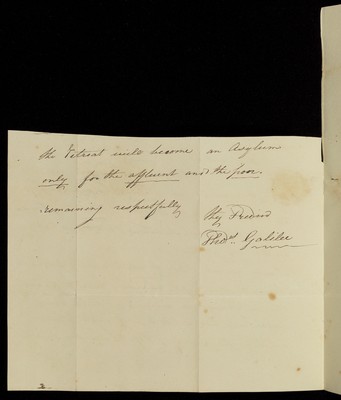 the Retreat will become an Asylum
only for the affluent and the poor.
remaining respectfully
thy Friend
Thos. Galilee